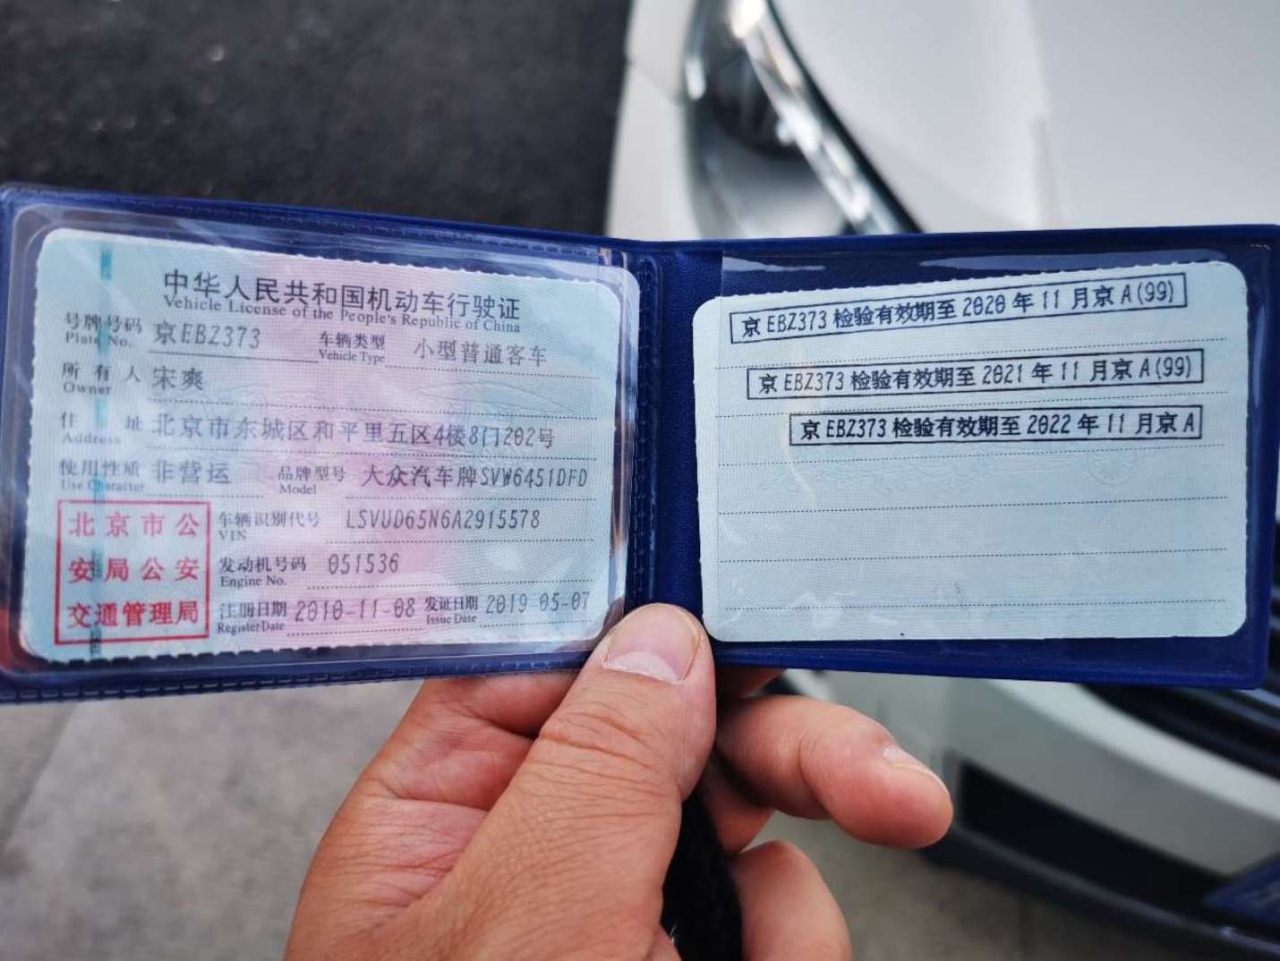 中华人民共和国机动车行驶证
Vehicle License of the People's Republic of China
号牌号码 京EBZ373 车辆类型 小型普通客车
Plate No. Vehicle Type
所有人 宋爽
Owner
住址 北京市东城区和平里五区4楼8门202号
Address
使用性质 非营运 品牌型号 大众汽车牌SVW6451DFD
Use Character Model
北京市公
安局公安
交通管理局
车辆识别代号 LSVUD65N6A2915578
VIN
发动机号码 051536
Engine No.
注册日期 2010-11-08 发证日期 2019-05-07
Register Date Issue Date
京EBZ373检验有效期至2020年11月京A(99)
京EBZ373检验有效期至2021年11月京A(99)
京EBZ373检验有效期至2022年11月京A